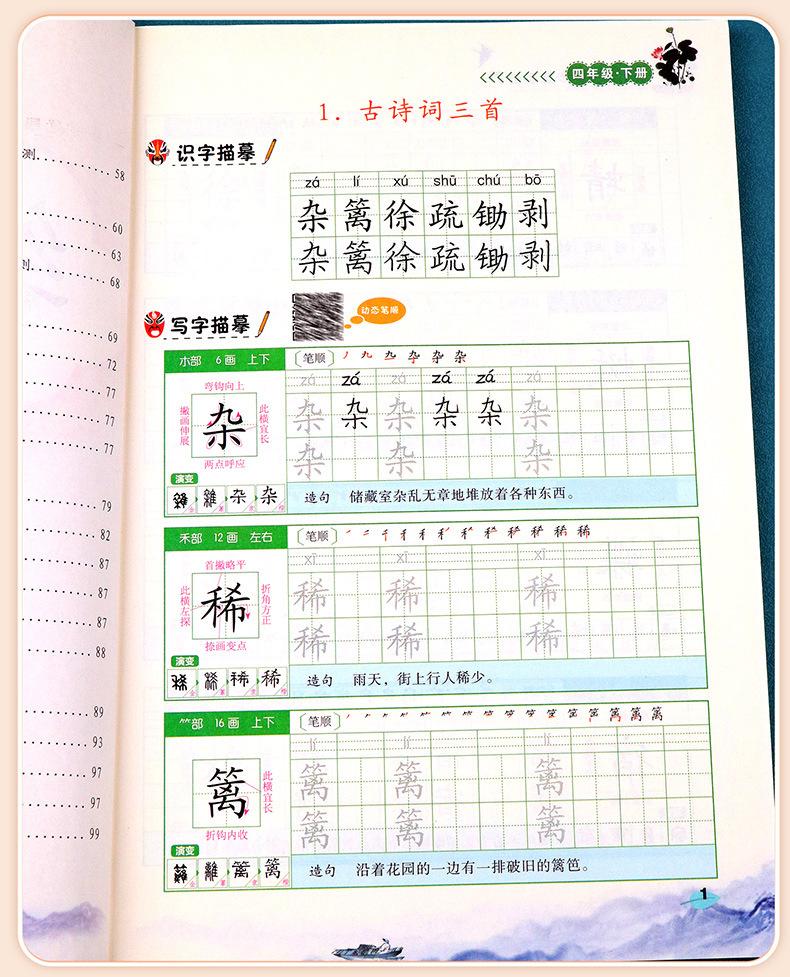 测.......... 58
60
63
68
69
72
77
77
77
79
82
87
87
87
88
89
93
97
97
99
四年级·下册
1. 古诗词三首
识字描摹
zá lí xú shū chú bō
杂 篱 徐 疏 锄 剥
杂 篱 徐 疏 锄 剥
写字描摹
动态笔顺
木部 6画 上下
笔顺
zá zá zá zá zá zá
杂 杂 杂 杂 杂 杂
杂 杂 杂
弯钩向上
撇画伸展
杂
此横宜长
两点呼应
演变
雜 杂 杂
造句 储藏室杂乱无章地堆放着各种东西。
禾部 12画 左右
笔顺
xī xī xī
稀 稀 稀
稀 稀 稀
首撇略平
此横左探
稀
折角方正
捺画变点
演变
稀 稀
造句 雨天，街上行人稀少。
⺮部 16画 上下
笔顺
lí lí lí
篱 篱 篱
篱 篱 篱
篱
此横宜长
折钩内收
演变
籬 篱 篱
造句 沿着花园的一边有一排破旧的篱笆。
1